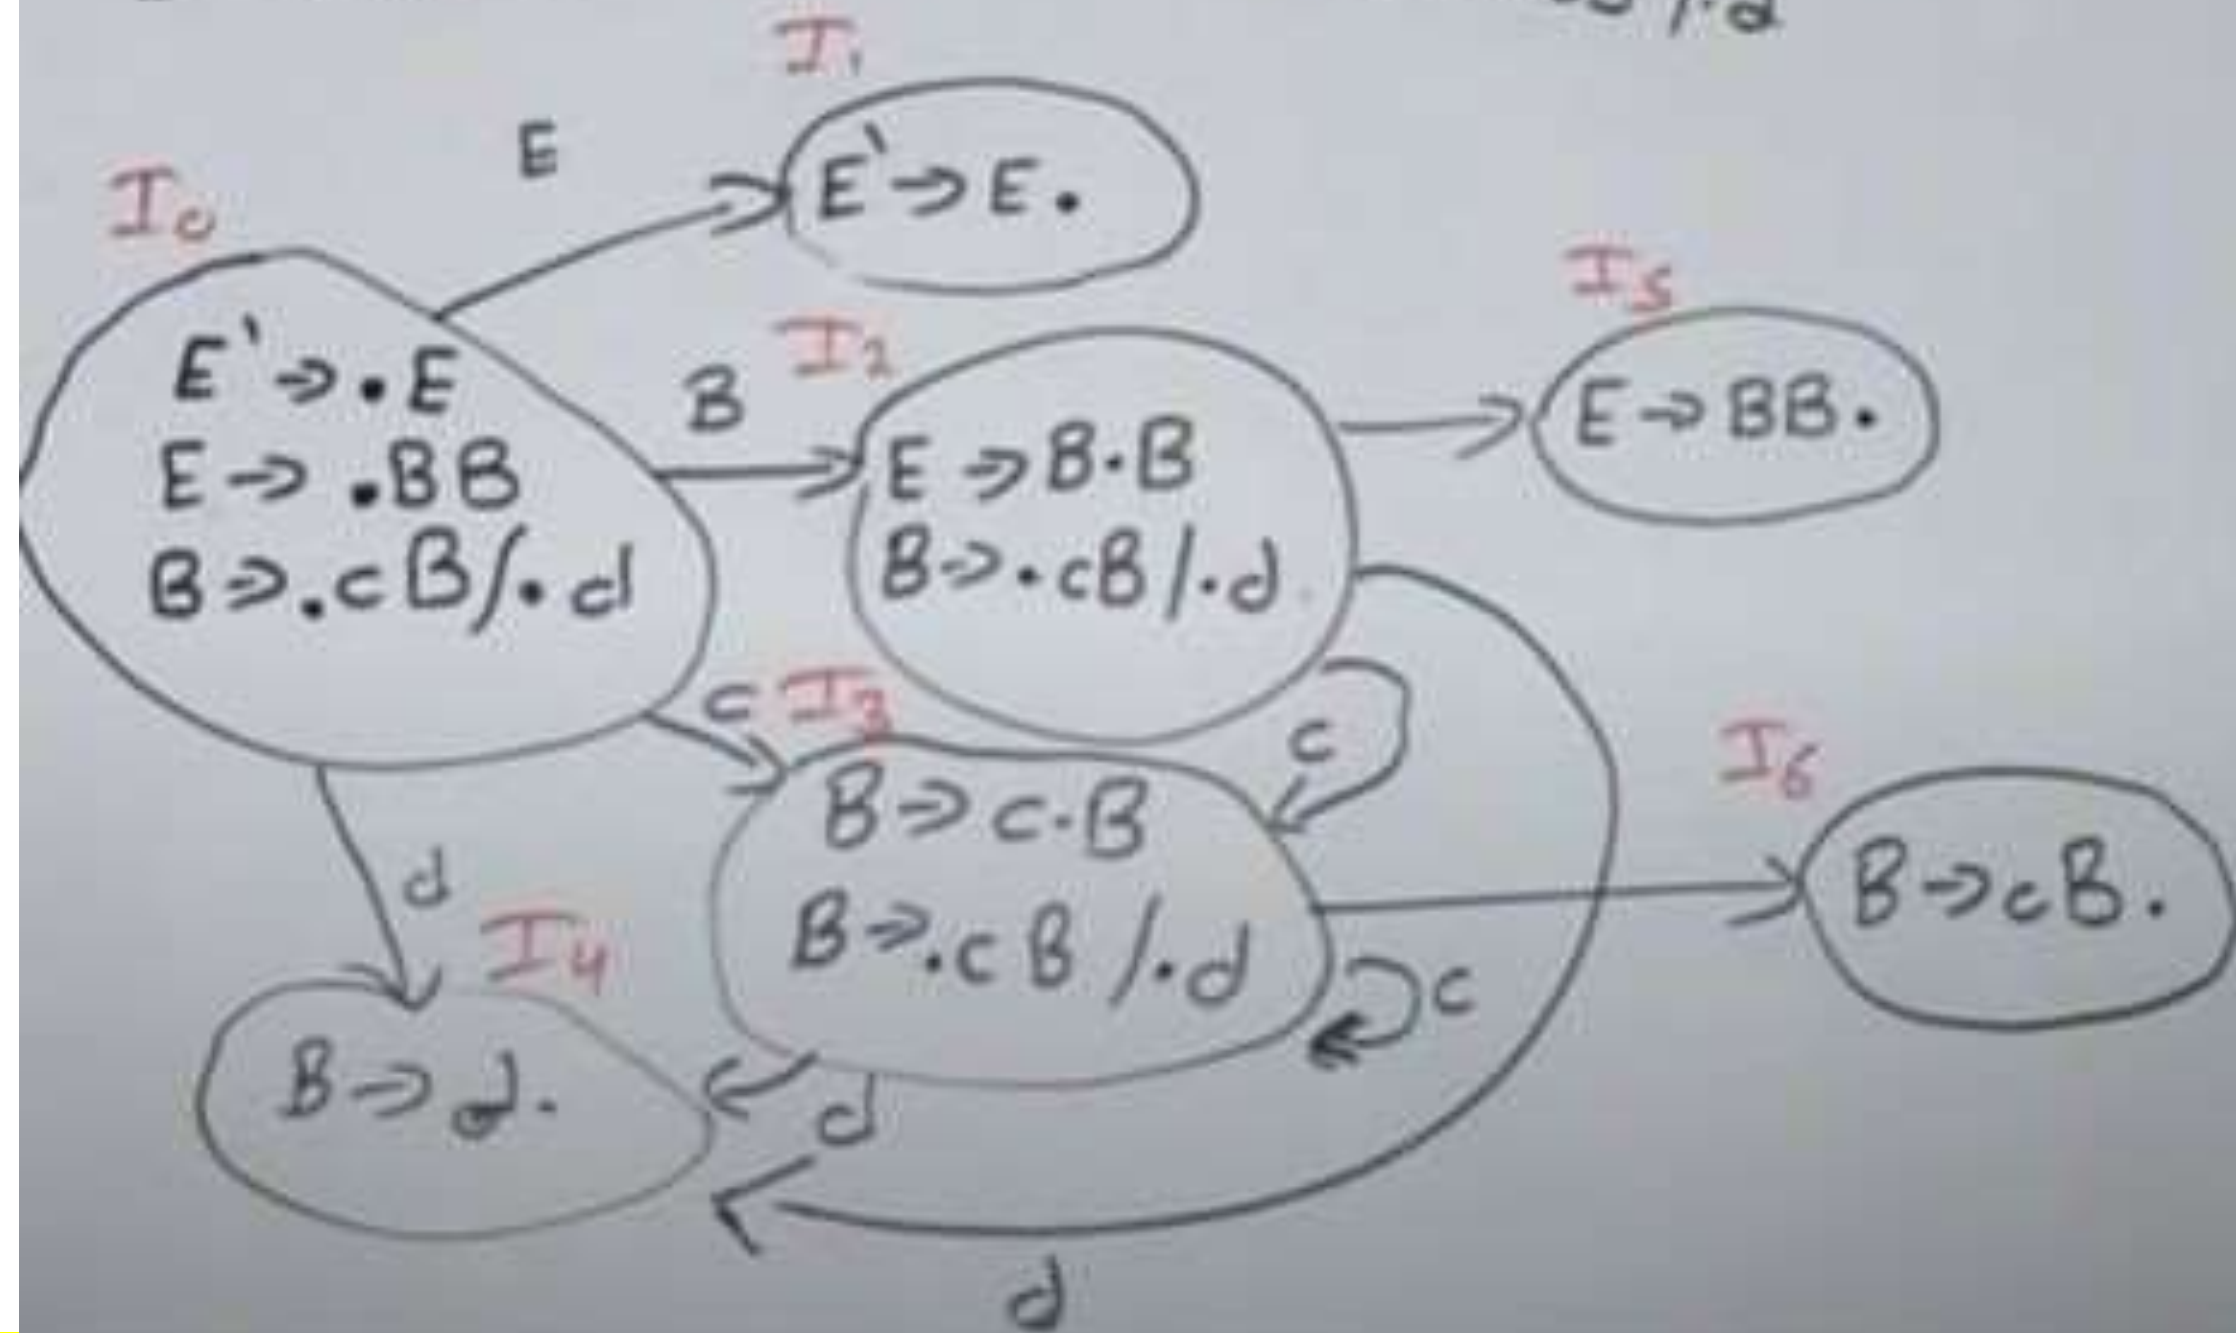 I0
E' → .E
E → .BB
B → .cB/.d
E
I1
E' → E.
B
I2
E → B.B
B → .cB/.d
I5
E → BB.
c
I3
B → c.B
B → .cB/.d
c
c
I6
B → cB.
d
I4
B → d.
d
d